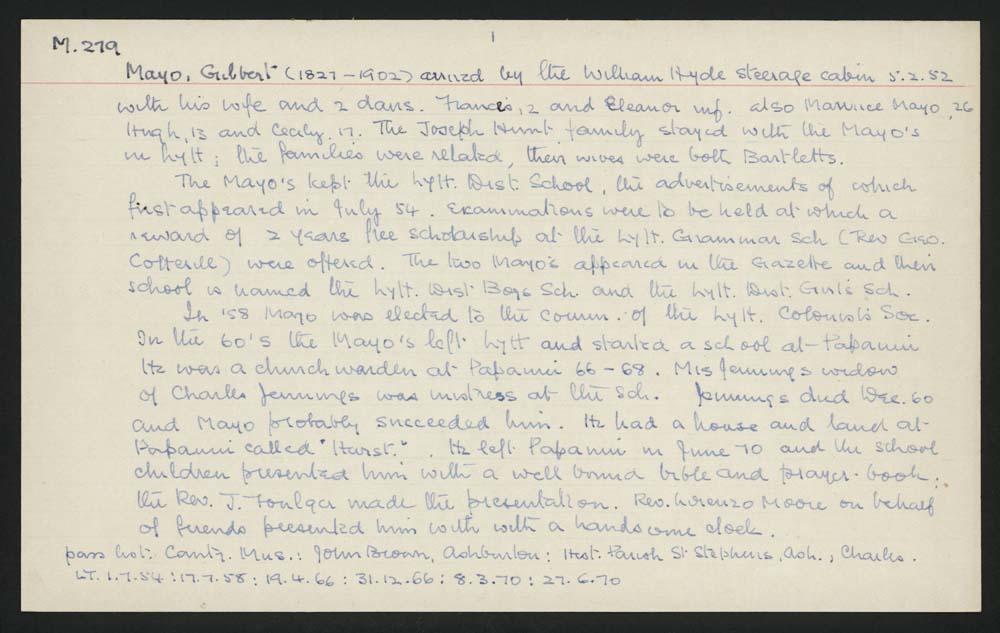 M.279
1
Mayo, Gilbert (1827-1902) arrived by the William Hyde steerage cabin 5.2.52
with his wife and 2 daus. Francis, 2 and Eleanor inf. also Maurice Mayo, 26
Hugh, 13 and Cecily, 17. The Joseph Hunt family stayed with the Mayo's
in Lytt; the families were related, their wives were both Bartletts.
The Mayo's kept the Lytt. Dist. School, the advertisements of which
first appeared in July 54. Examinations were to be held at which a
reward of 2 years free scholarship at the Lytt. Grammar Sch (Rev Geo.
Cotterill) were offered. The two Mayo's appeared in the Gazette and their
school is named the Lytt. Dist Boys Sch. and the Lytt. Dist. Girls Sch.
In '58 Mayo was elected to the comm. of the Lytt. Colonists Soc.
In the 60's the Mayo's left Lytt and started a school at Papanui
He was a church warden at Papanui 66-68. Mrs Jennings widow
of Charles Jennings was mistress at the Sch. Jennings died Dec. 60
and Mayo probably succeeded him. He had a house and land at
Papanui called "Hurst." He left Papanui in June 70 and the school
children presented him with a well bound bible and prayer-book;
the Rev. J. made the presentation. Rev. Lorenzo Moore on behalf
of friends presented him with with a handsome clock.
pass list: Cantb. Mus.: John Brown, Ashburton: Hist. Parish St Stephens, Ash., Charles.
LT. 1.7.54: 17.7.58: 19.4.66: 31.12.66: 8.3.70: 27.6.70